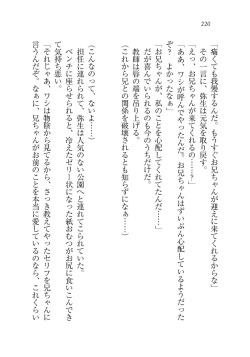 220
「痛くても我慢するんだ。もうすぐお兄ちゃんが迎えに来てくれるからな」
その一言に、弥生は元気を取り戻す。
「えっ、お兄ちゃんが来てくれるの……？」
「ああ、ワシが呼んでやったんだ。お兄ちゃんはずいぶん心配しているようだった
ぞ。よかったなぁ」
（お兄ちゃんが、私のことを心配してくれてたんだ……）
だが喜んでいられるのも今のうちだけだ。
教師は唇の端を吊り上げる。
（これから兄との関係を破壊されるとも知らずになぁ……）
（こんなのって、ないよ……）
担任に連れられて、弥生は人気のない公園へと連れてこられていた。
ベンチに座らせられると、冷えたゼリー状になった紙おむつがお尻に食いこんでき
て気持ち悪い。
「それじゃあ、ワシは物陰から見てるから、さっき教えてやったセリフを兄ちゃんに
言うんだぞ。なぁに、兄ちゃんがお前のことを本当に愛しているのなら、これくらい